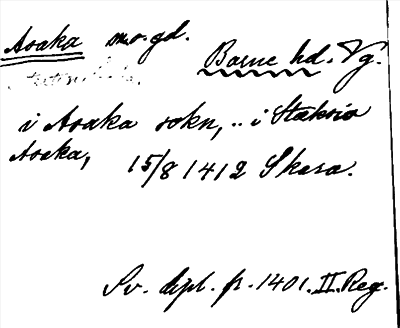 Asaka sn o. gd.
Barne hd. Vg.
i Asaka sokn, .. i Stakrio
Asaka, 15/8 1412 Skara.
Sv. dipl. fr. 1401. II. Reg.